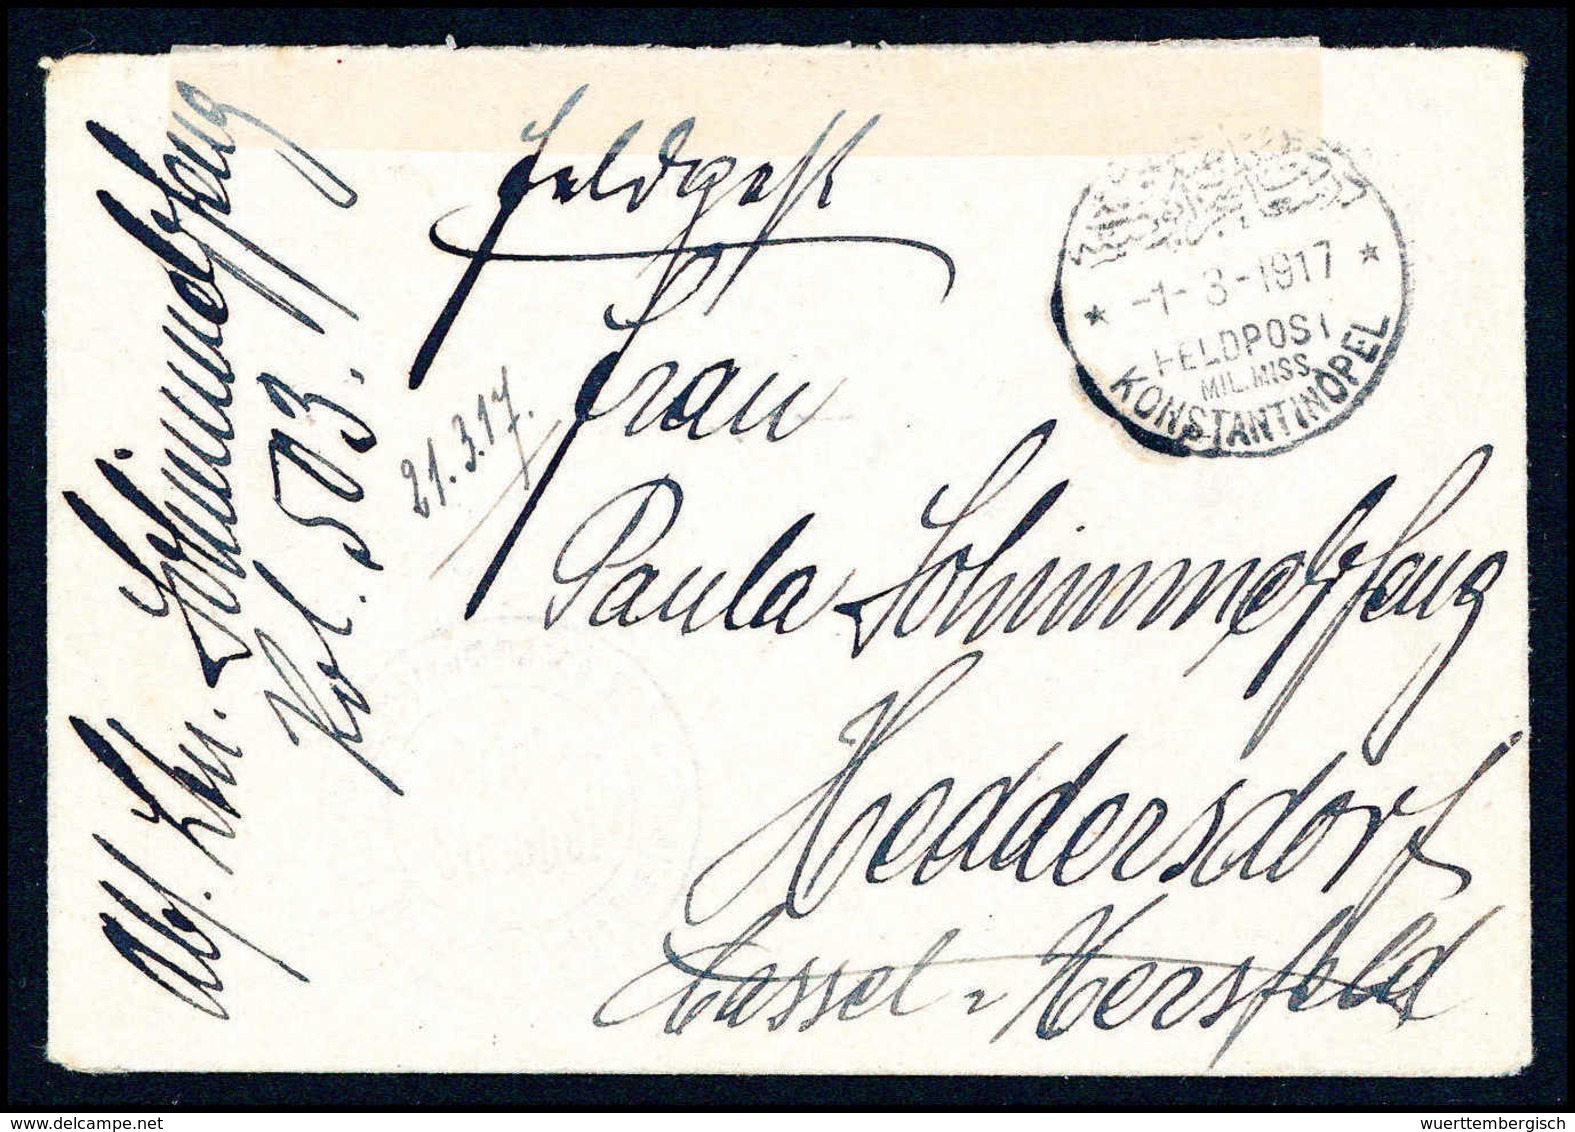 Feldpost
Frau
Paula Schimmelpfeng
Heddersdorf
Cassel-Hersfeld
21.3.17.
Abs. Ltn. Schimmelpfeng
Kol. 503.
-1-3-1917
FELDPOST
MIL.MISS.
KONSTANTINOPEL
www.delcampe.net
wuerttembergisch